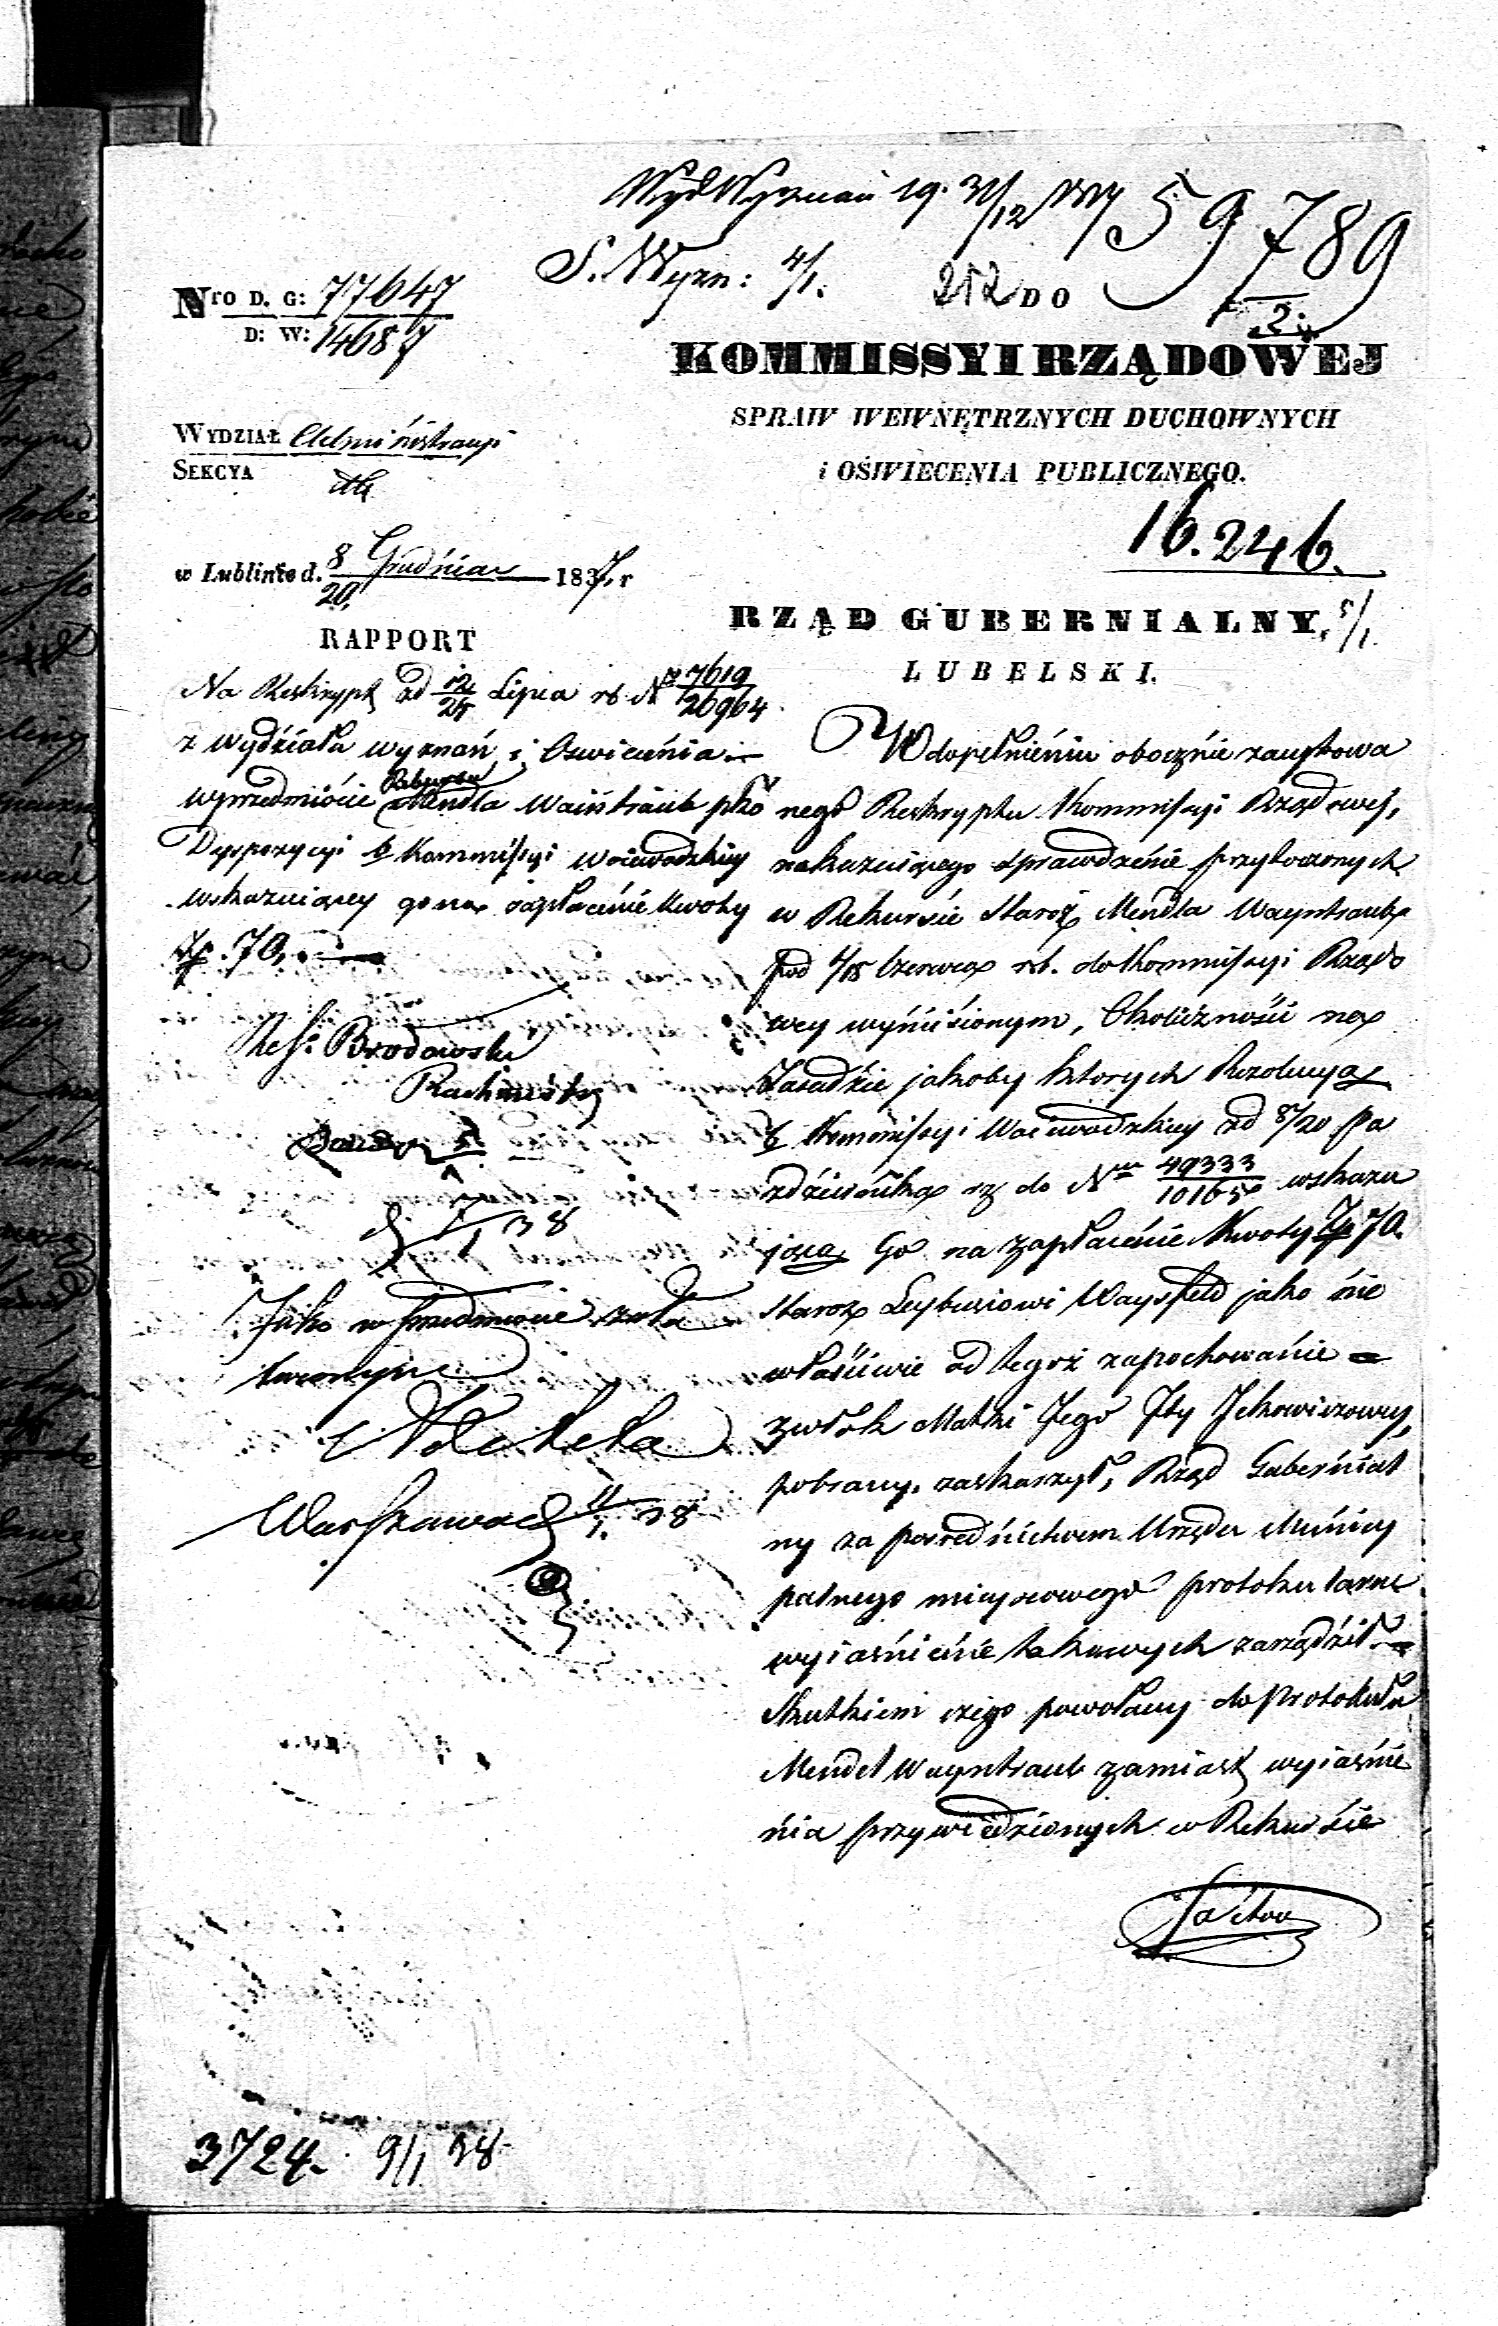 Wyd Wyznań 19. 31/12 1837
59789
2
S. Wyzn: 4/1.
212 DO
Nro D. G: 77647
D: W: 14687
KOMMISSYI RZĄDOWEJ
WYDZIAŁ Administracyi
SPRAW WEWNĘTRZNYCH DUCHOWNYCH
SEKCYA
i OŚWIECENIA PUBLICZNEGO.
16.246.
w Lublinie d. 8/20 Grudnia 1837 r
RZĄD GUBERNIALNY, 5/1.
RAPPORT
LUBELSKI.
Na Reskrypt zd 12/24 Lipca rb N 7619/26964
z wydziału wyznań i Oswiecenia
w przedmiocie Rekursu Mendla Wainstraub pko
Dyspozycyi b Kommissyi Woiewodzkiey
wskazuiącey go na zapłacenie kwoty
Zp. 70,
Ref: Brodowski
Rachmistrz
1/38
Jako w przedmiocie
Warszawa d 11/1. 38
W dopełnieniu obocznie zacytowa
nego Reskryptu Kommissyi Rządowej,
nakazuiącego sprawdzenie przytoczonych
w Rekursie Staroz Mendla Wayntraub
pod 6/18 Czerwca rb. do Kommissyi Rządo
wey wyniesionym, Okoliczności na
Zasadzie jakoby ktorych Rezolucya
b Kommissyi Woiewodzkiey zd 8/20 Pa
zdziernika rz do Nru 49333/10165 wskazu
jąca Go na zapłacenie Kwoty Zp 70.
Staroz Leybusiowi Waysfeld jako nie
właściwie od tegoż za pochowanie
zwłok Matki Jego Ity Jckowiczowey,
pobraney, zaskarzył, Rząd Gubernial
ny za posrednictwem Urzędu Municy
palnego mieyscowego protokularne
wyiaśnienie takowych zarządził.
Skutkiem czego powołany do Protokułu
Mendel Wayntraub zamiast wyiaśnie
nia przywiedzionych w Rekursie
3724. 9/1 38